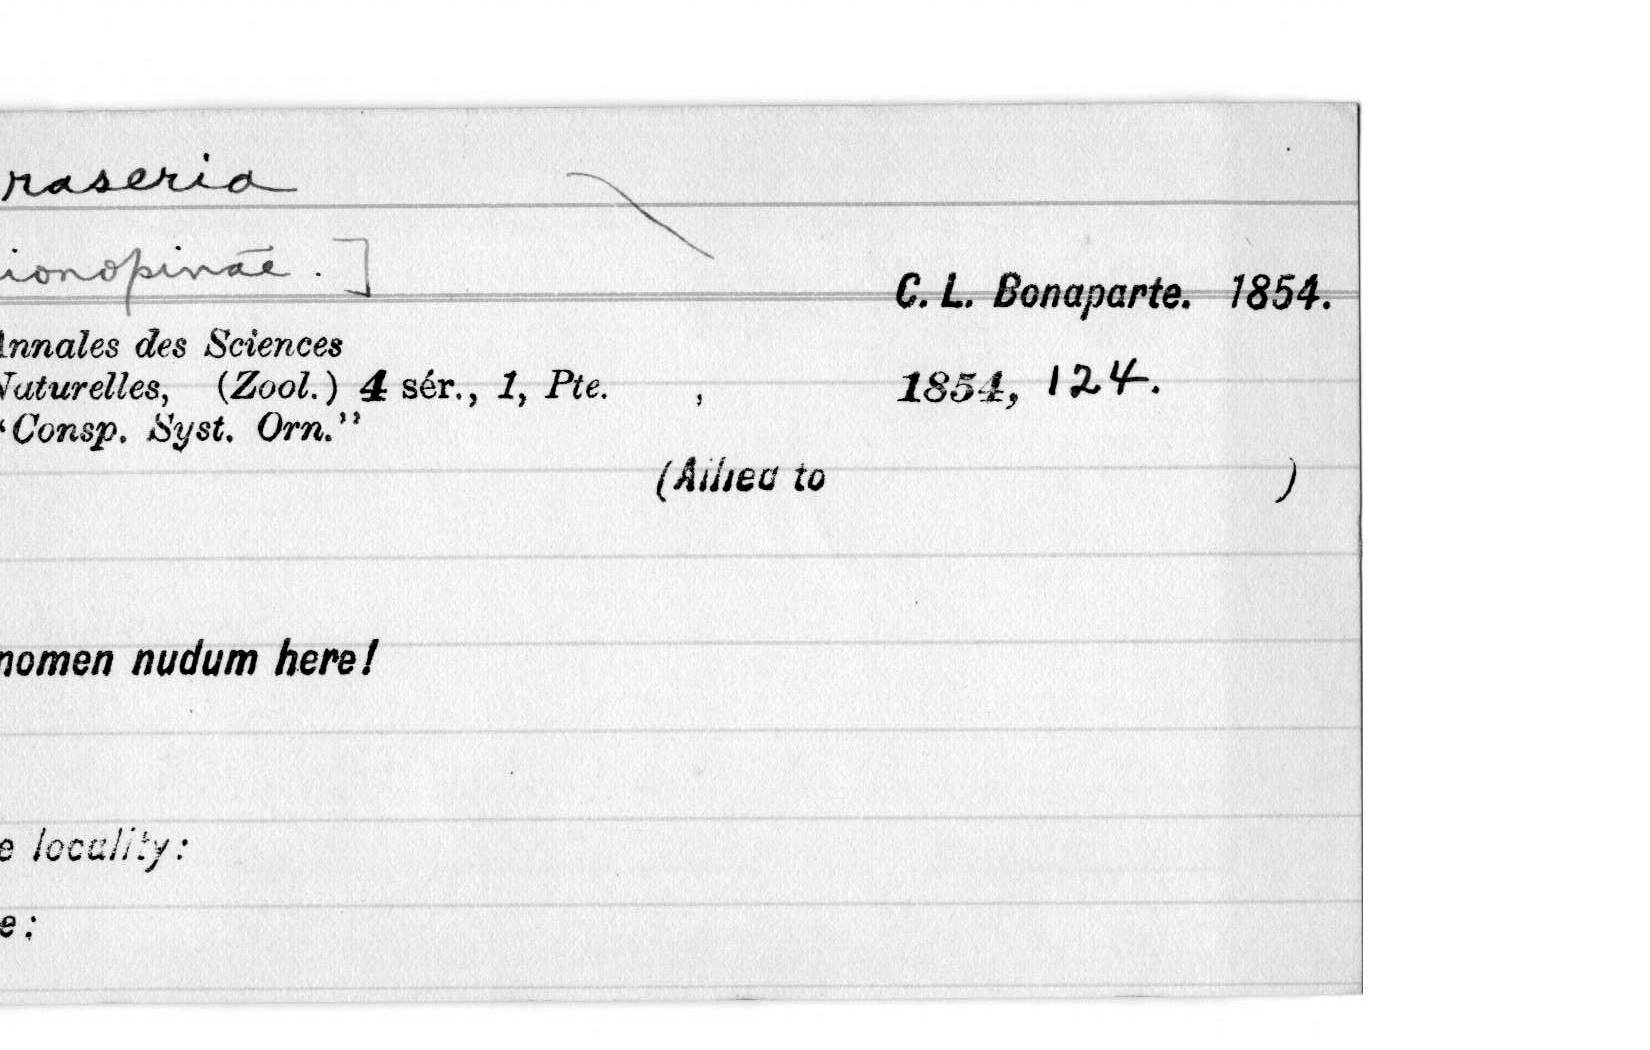 raseria
ionopinae.]
C. L. Bonaparte. 1854.
Annales des Sciences
Naturelles, (Zool.) 4 sér., 1, Pte. , 1854, 124.
"Consp. Syst. Orn."
(Allied to )
nomen nudum here!
e locality:
e: